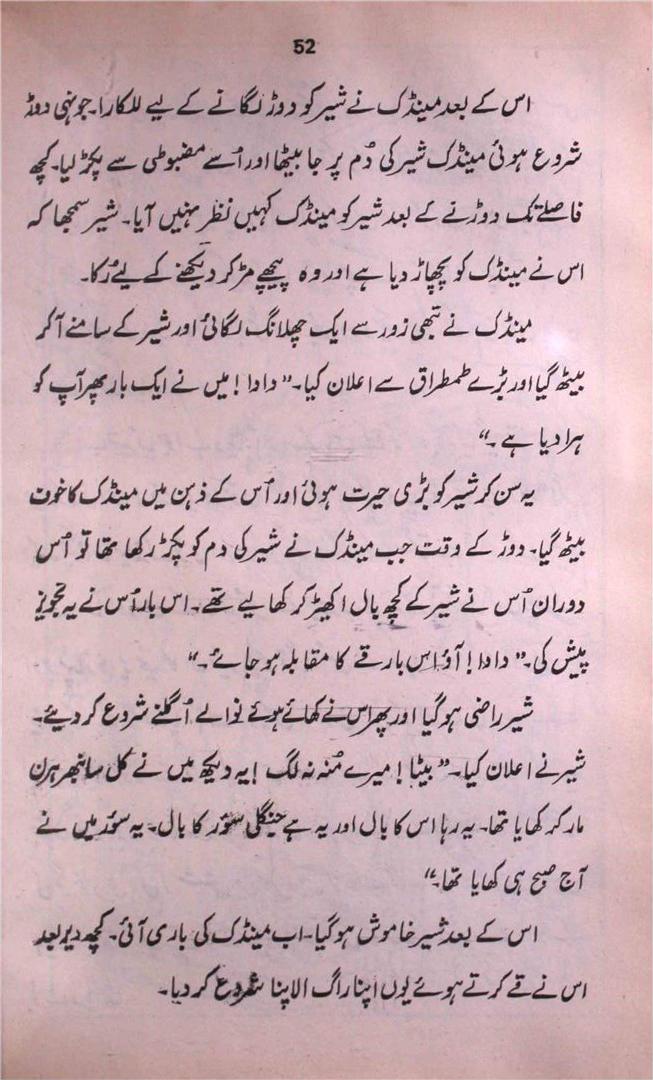 52
اس کے بعد مینڈک نے شیر کو دوڑ لگانے کے لیے للکارا۔ جونہی دوڑ
شروع ہوئی مینڈک شیر کی دُم پر جا بیٹھا اور اُسے مضبوطی سے پکڑ لیا۔ کچھ
فاصلے تک دوڑنے کے بعد شیر کو مینڈک کہیں نظر نہیں آیا۔ شیر سمجھا کہ
اس نے مینڈک کو پچھاڑ دیا ہے اور وہ پیچھے مڑ کر دیکھنے کے لیے رُکا۔
مینڈک نے تبھی زور سے ایک چھلانگ لگائی اور شیر کے سامنے آکر
بیٹھ گیا اور بڑے طمطراق سے اعلان کیا۔ ”دادا! میں نے ایک بار پھر آپ کو
ہرا دیا ہے۔“
یہ سن کر شیر کو بڑی حیرت ہوئی اور اُس کے ذہن میں مینڈک کا خوف
بیٹھ گیا۔ دوڑ کے وقت جب مینڈک نے شیر کی دم کو پکڑ رکھا تھا تو اُس
دوران اُس نے شیر کے کچھ بال اکھیڑ کر کھا لیے تھے۔ اس بار اُس نے یہ تجویز
پیش کی۔ ”دادا! آؤ اس بار قے کا مقابلہ ہو جائے۔“
شیر راضی ہو گیا اور پھر اس نے کھائے ہوئے نوالے اُگلنے شروع کر دیئے۔
شیر نے اعلان کیا۔ ”بیٹا! میرے مُنہ نہ لگ! یہ دیکھ میں نے کل سانبھر ہرن
مار کر کھایا تھا۔ یہ رہا اس کا بال اور یہ ہے جنگلی سؤر کا بال۔ یہ سؤر میں نے
آج صبح ہی کھایا تھا۔“
اس کے بعد شیر خاموش ہو گیا۔ اب مینڈک کی باری آئی۔ کچھ دیر بعد
اس نے قے کرتے ہوئے یوں اپنا راگ الاپنا شروع کر دیا۔